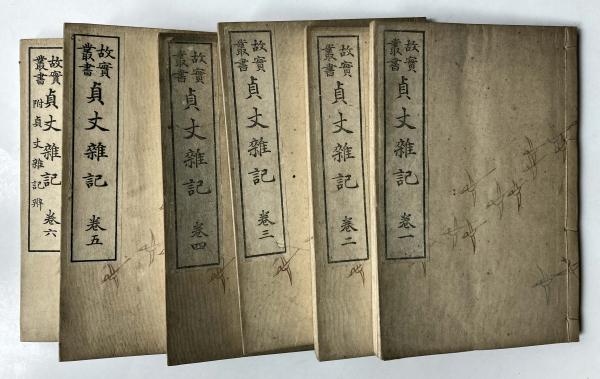 故實叢書
貞丈雜記
卷一
故實叢書
貞丈雜記
卷二
故實叢書
貞丈雜記
卷三
故實叢書
貞丈雜記
卷四
故實叢書
貞丈雜記
卷五
故實叢書
貞丈雜記
附貞丈雜記辨
卷六